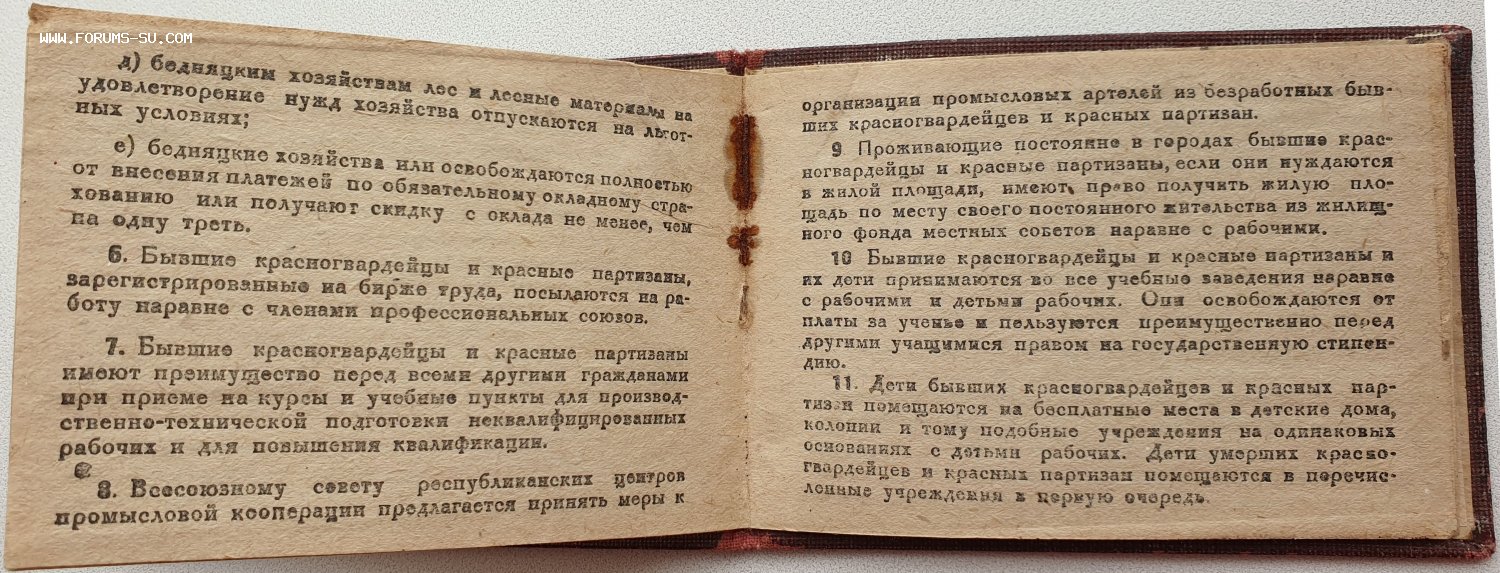 WWW.FORUMS-SU.COM
д) бедняцким хозяйствам лес и лесные материалы на
удовлетворение нужд хозяйства отпускаются на льгот-
ных условиях;
е) бедняцкие хозяйства или освобождаются полностью
от внесения платежей по обязательному окладному стра-
хованию или получают скидку с оклада не менее, чем
на одну треть.
6. Бывшие красногвардейцы и красные партизаны,
зарегистрированные на бирже труда, посылаются на ра-
боту наравне с членами профессиональных союзов.
7. Бывшие красногвардейцы и красные партизаны
имеют преимущество перед всеми другими гражданами
при приеме на курсы и учебные пункты для производ-
ственно-технической подготовки неквалифицированных
рабочих и для повышения квалификации.
8. Всесоюзному совету республиканских центров
промысловой кооперации предлагается принять меры к
организации промысловых артелей из безработных быв-
ших красногвардейцев и красных партизан.
9 Проживающие постоянно в городах бывшие крас-
ногвардейцы и красные партизаны, если они нуждаются
в жилой площади, имеют право получить жилую пло-
щадь по месту своего постоянного жительства из жилищ-
ного фонда местных советов наравне с рабочими.
10 Бывшие красногвардейцы и красные партизаны и
их дети принимаются во все учебные заведения наравне
с рабочими и детьми рабочих. Они освобождаются от
платы за ученье и пользуются преимущественно перед
другими учащимися правом на государственную стипен-
дию.
11. Дети бывших красногвардейцев и красных пар-
тизан помещаются на бесплатные места в детские дома,
колонии и тому подобные учреждения на одинаковых
основаниях с детьми рабочих. Дети умерших красно-
гвардейцев и красных партизан помещаются в перечис-
ленные учреждения в первую очередь.